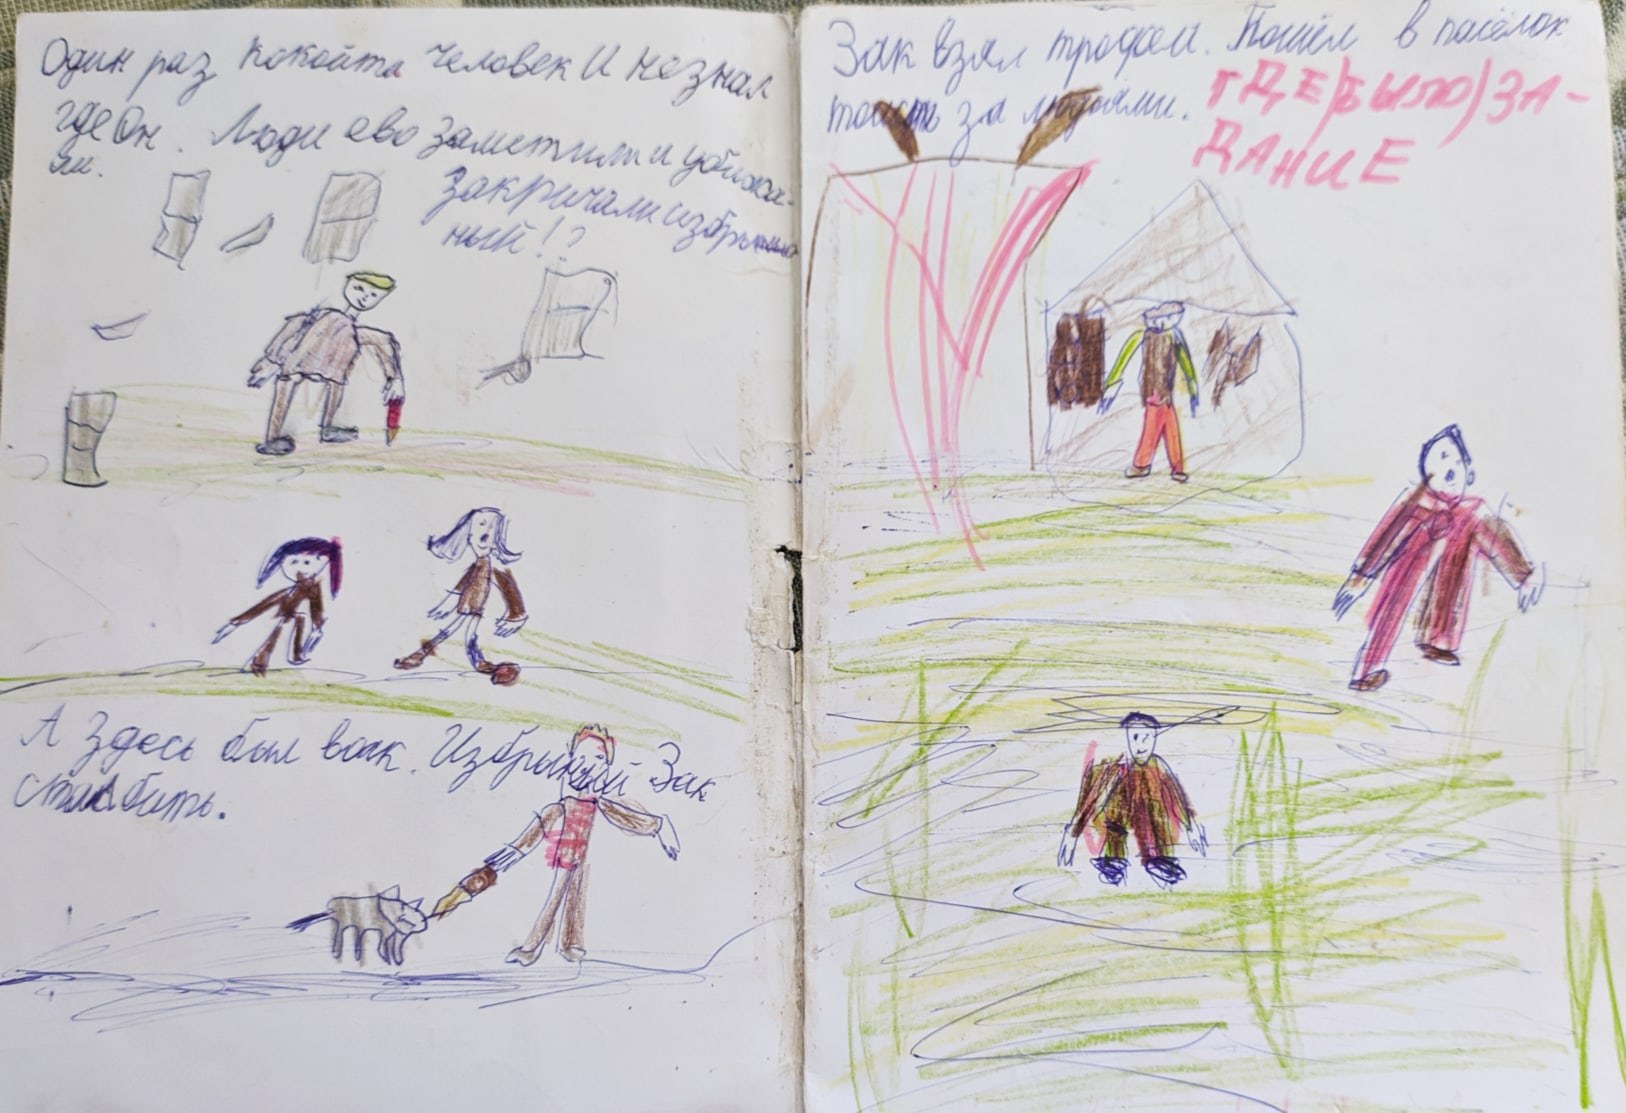 Один раз Кокойта человек И незнал
где Он. Люди ево Заметили и убижа-
ли.
Закричали избры
ный!?
А Здесь был волк. Избрыный Зак
стал бить.
Зак взял трофеи. Пошёл в посёлок
за людьми.
ГДЕ(БЫЛО)ЗА-
ДАНИЕ